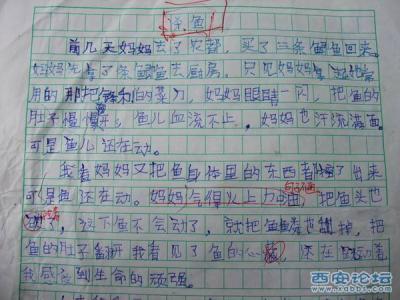 条鱼
前几天妈妈去了农都，买了三条鲫鱼回来。
妈妈先拿了条鲫鱼去厨房，只见妈妈拿起她常
用的那把锋利的菜刀，妈妈眼睛一闪，把鱼的
肚子慢慢，鱼儿血流不止，妈妈也汗流满面
可是鱼儿还在动。
我看妈妈又把鱼身体里的东西者了出来
可是鱼还在动。妈妈气得火上力曲 句子不通 把鱼头也
了，这下鱼不会动了，就把鱼也掉，把
鱼的肚子翻开我看见了鱼的心，还在动着
我感受到生命的顽强。
西安论坛
www.xabbs.com